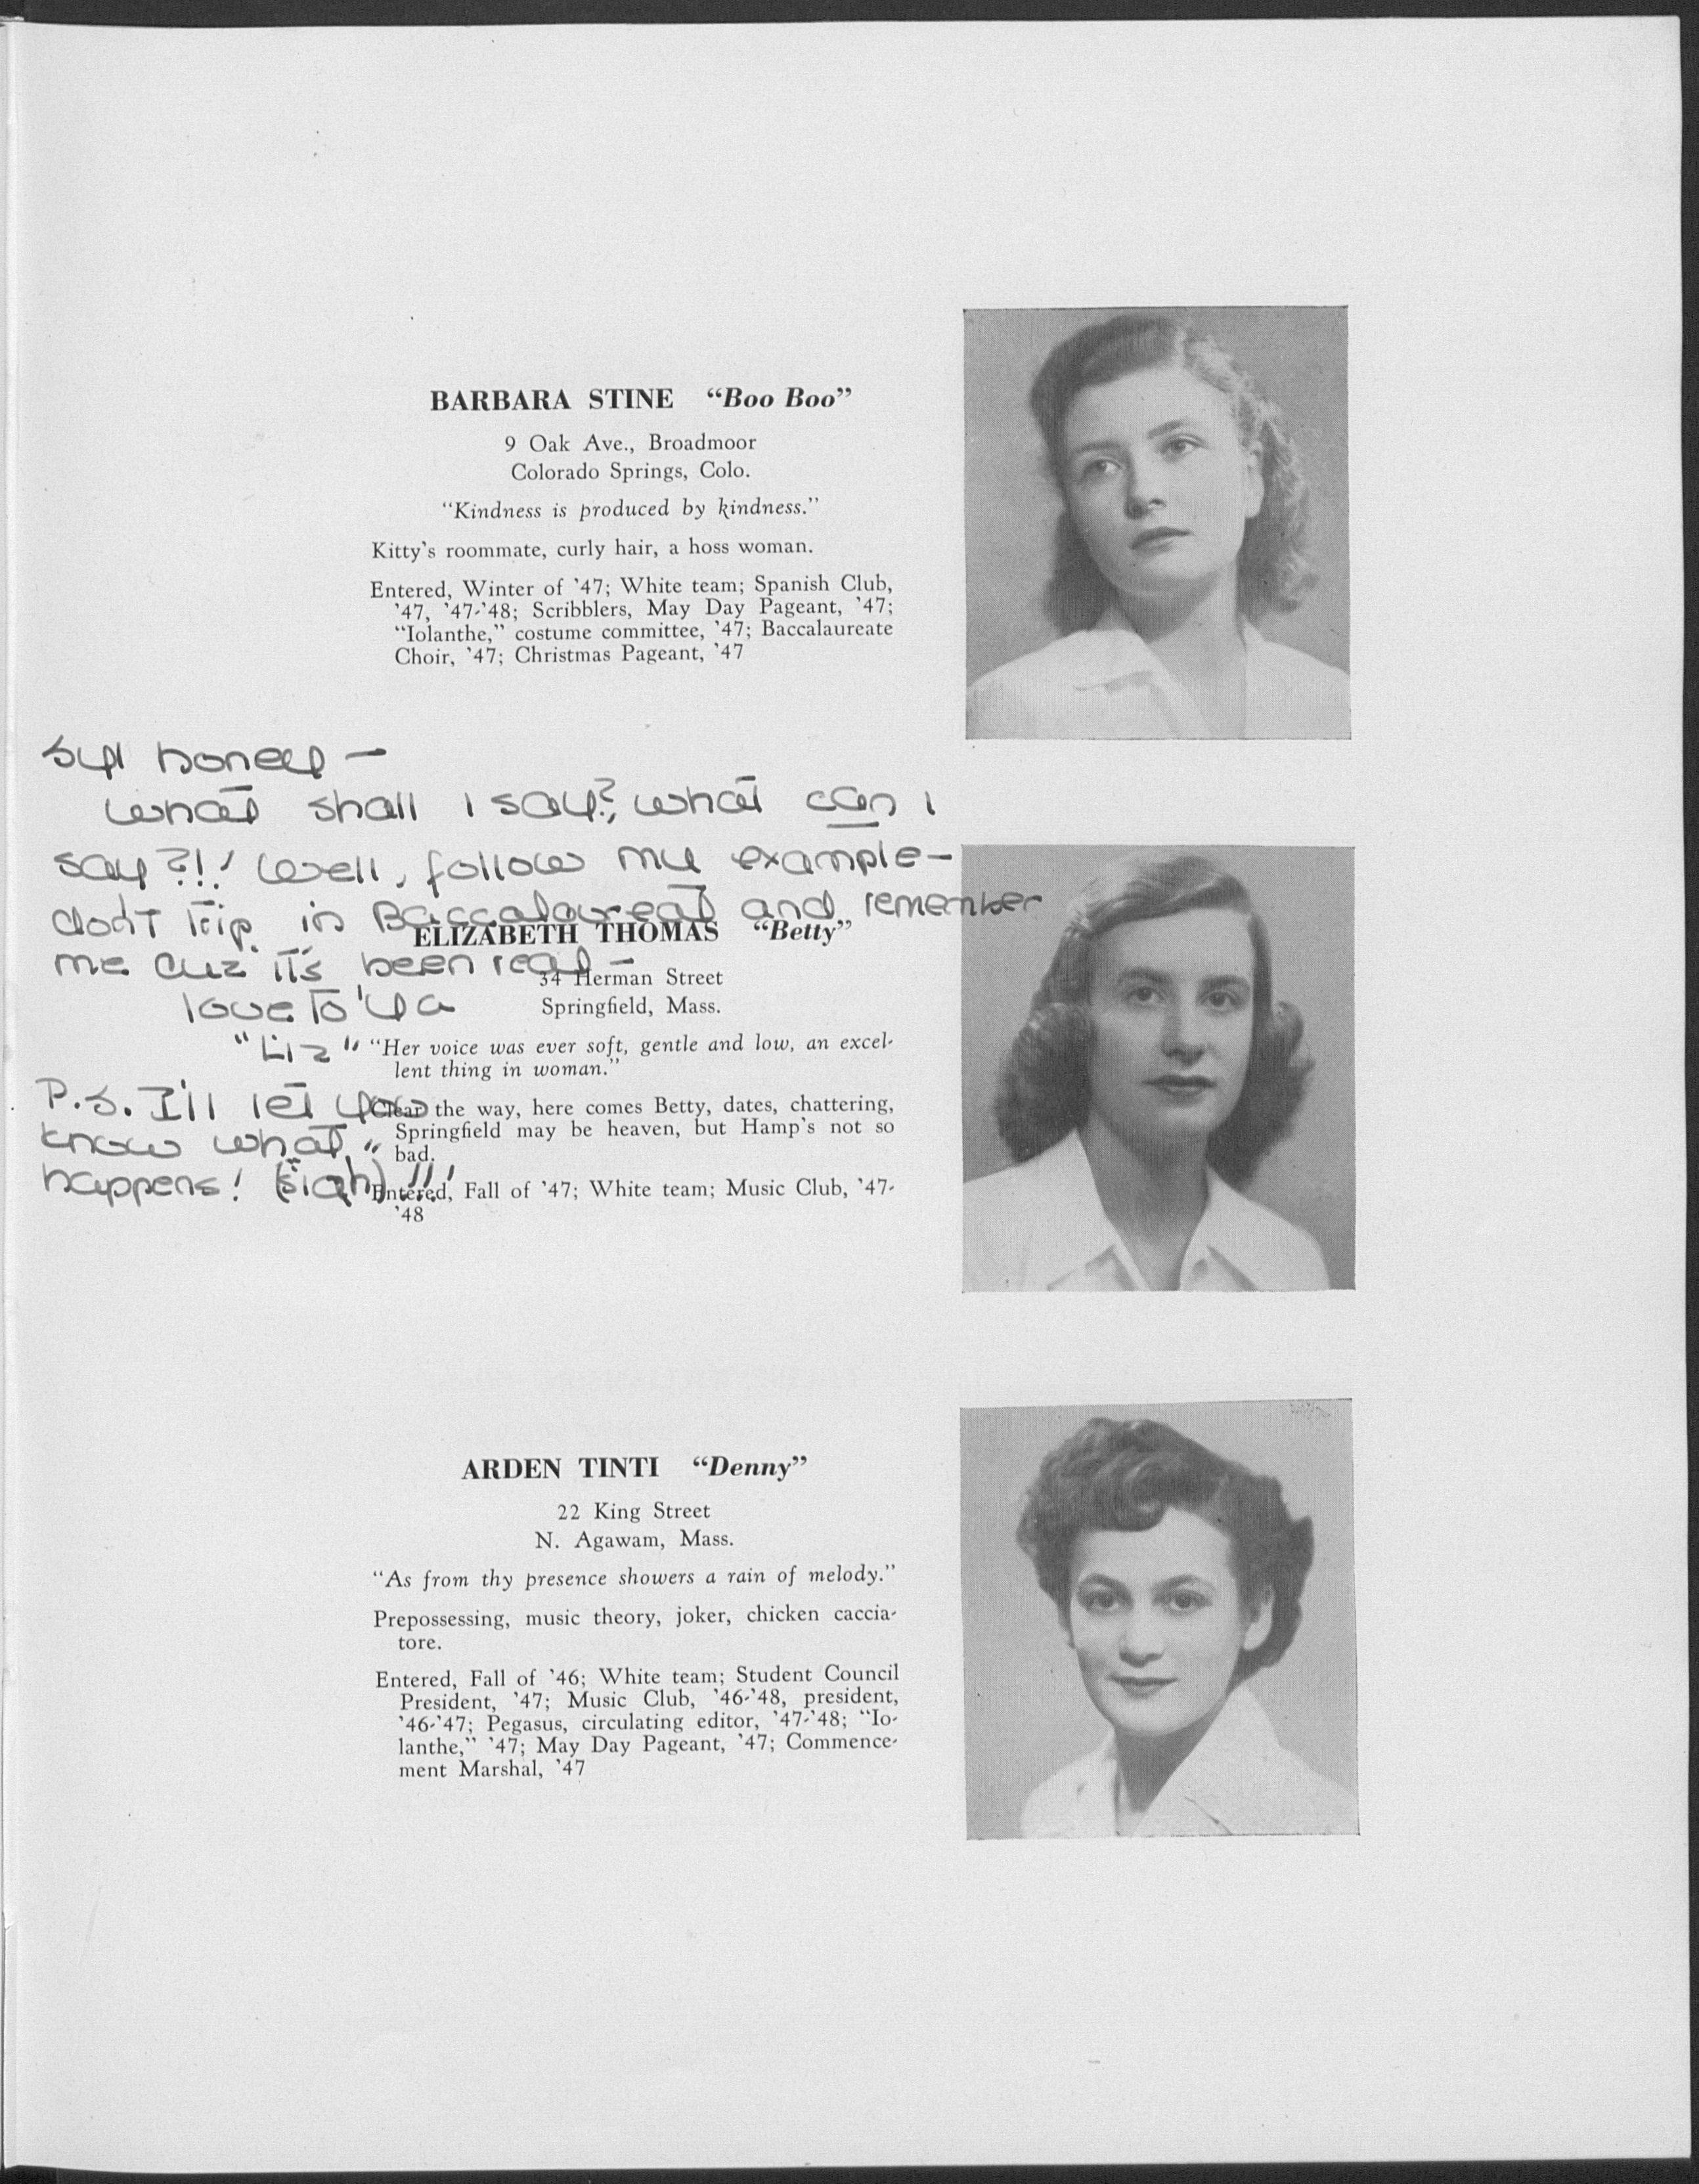 BARBARA STINE “Boo Boo”
9 Oak Ave., Broadmoor
Colorado Springs, Colo.
“Kindness is produced by kindness.”
Kitty's roommate, curly hair, a hoss woman.
Entered, Winter of '47; White team; Spanish Club,
'47, '47-'48; Scribblers, May Day Pageant, '47;
“Iolanthe,” costume committee, '47; Baccalaureate
Choir, '47; Christmas Pageant, '47
Syl honey -
what shall I say?, what can I
say?!! Well, follow my example -
don't trip in Baccalaureat and remember
me cuz it's been real -
love to 'ya
"Liz"
P.S. I'll let you
know what
happens! (sigh) !!!
ELIZABETH THOMAS “Betty”
34 Herman Street
Springfield, Mass.
“Her voice was ever soft, gentle and low, an excel-
lent thing in woman.”
Clear the way, here comes Betty, dates, chattering,
Springfield may be heaven, but Hamp's not so
bad.
Entered, Fall of '47; White team; Music Club, '47-
'48
ARDEN TINTI “Denny”
22 King Street
N. Agawam, Mass.
“As from thy presence showers a rain of melody.”
Prepossessing, music theory, joker, chicken caccia-
tore.
Entered, Fall of '46; White team; Student Council
President, '47; Music Club, '46-'48, president,
'46-'47; Pegasus, circulating editor, '47-'48; “Io-
lanthe,” '47; May Day Pageant, '47; Commence-
ment Marshal, '47